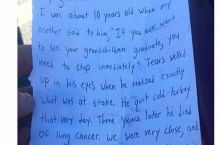 I was about 10 years old when my
mother said to him, "If you ever want
to see your grandchildren graduate, you
need to stop immediately." Tears welled
up in his eyes when he realized exactly
what was at stake. He quit cold-turkey
that very day. Three years later he died
of lung cancer. We were very close, and